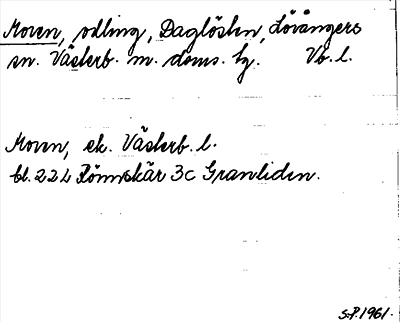 Moren, odling, Daglösten, Lövångers
sn. Västerb. m. doms. hg. Vb. l.
Moren, ek. Västerb. l.
bl. 22L Rönnskär 3c Granliden.
S.P. 1961.